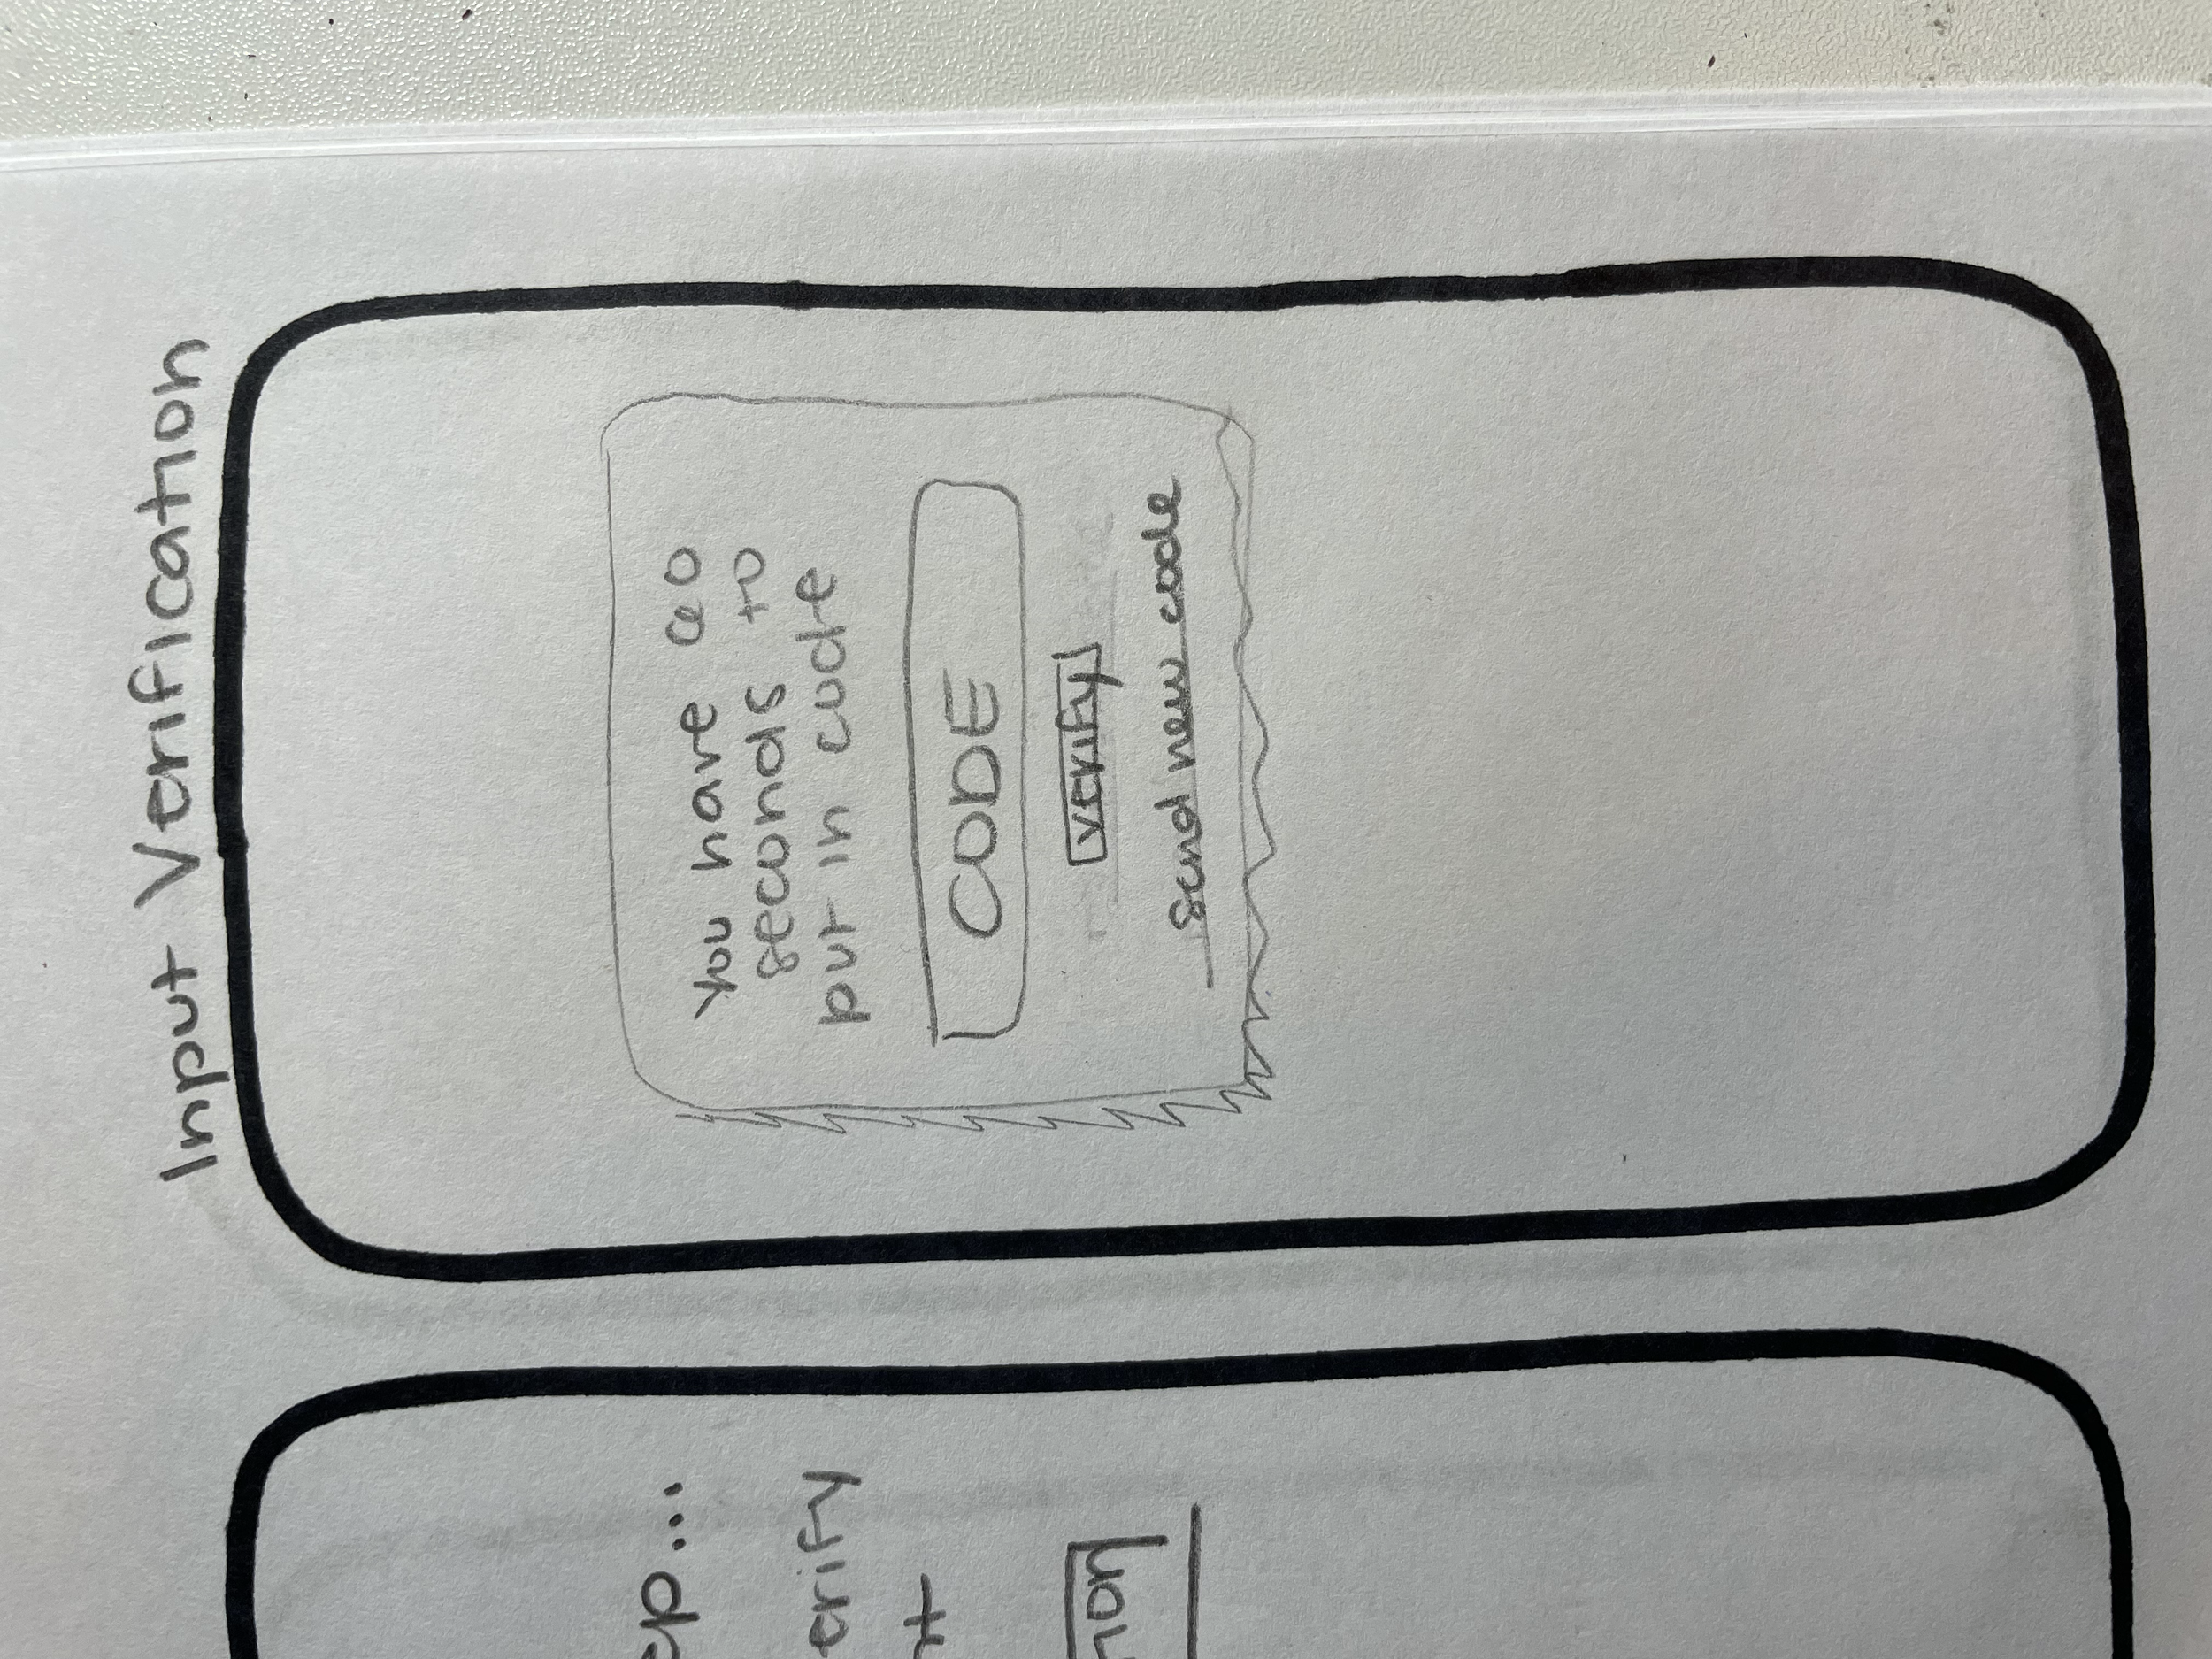 Input Verification
You have 60
seconds to
put in code
CODE
verify
Send new code
ep...
erify